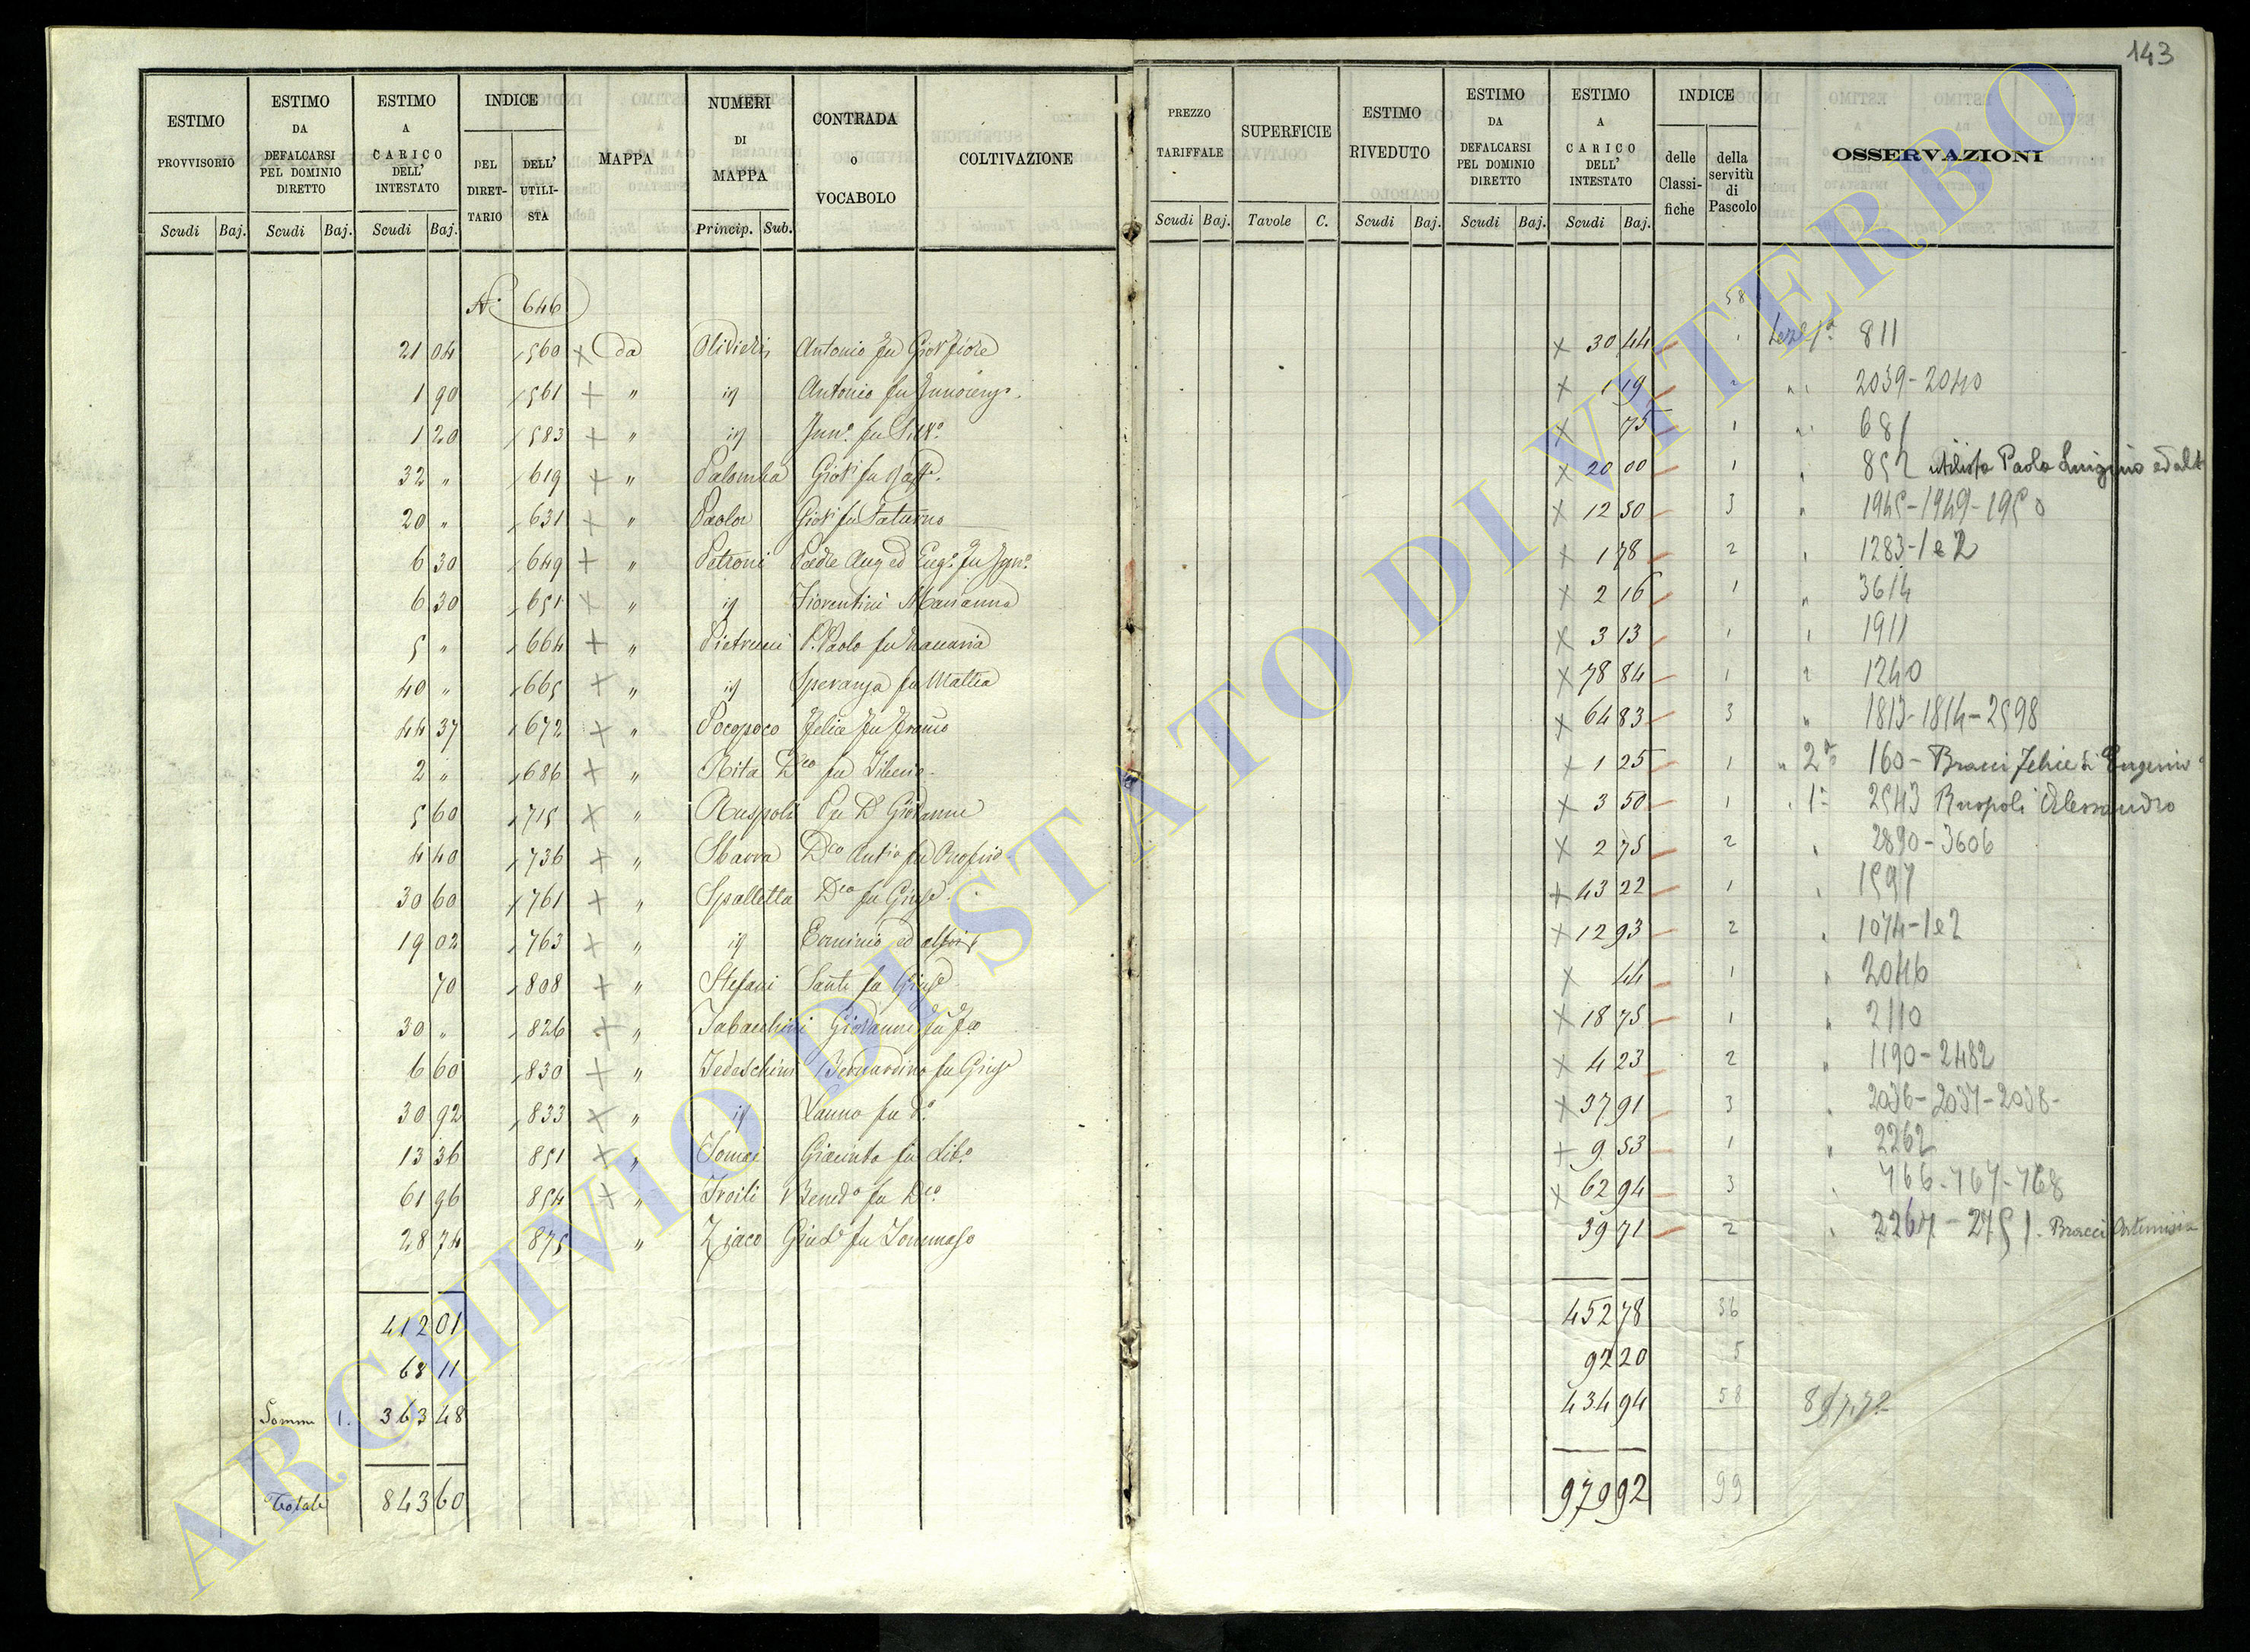 143
ESTIMO PROVVISORIO
Scudi Baj.
ESTIMO DA DEFALCARSI PEL DOMINIO DIRETTO
Scudi Baj.
ESTIMO A CARICO DELL' INTESTATO
Scudi Baj.
INDICE
DEL DIRET-TARIO
DELL' UTILI-STA
MAPPA
NUMERI DI MAPPA
Princip. Sub.
CONTRADA O VOCABOLO
COLTIVAZIONE
PREZZO TARIFFALE
Scudi Baj.
SUPERFICIE
Tavole C.
ESTIMO RIVEDUTO
Scudi Baj.
ESTIMO DA DEFALCARSI PEL DOMINIO DIRETTO
Scudi Baj.
ESTIMO A CARICO DELL' INTESTATO
Scudi Baj.
INDICE
delle Classi-fiche
della servitù di Pascolo
OSSERVAZIONI
N° 646 58
21 04 560 × da Olivieri Antonio fu × 30 44 1 811
1 90 561 × " id Antonio fu × 1 19 2 " 2039-2040
1 20 583 × " id fu × 75 1 " 681
32 " 619 × " Palomba Giov fu × 20 00 1 " 852 utilista Paolo ed alt
20 " 631 × " Paolo Giov fu Saturno × 12 50 3 " 1945-1949-1950
6 30 649 × " Petroni ed Eug° fu × 1 78 2 " 1283-1 e 2
6 30 651 × " id Fiorentini Marianna × 2 16 1 " 3614
5 " 664 × " P. Paolo fu × 3 13 1 " 1911
40 " 665 × " id Speranza fu Mattia × 78 84 1 " 1240
44 37 672 × " Pocopoco Felice fu × 64 83 3 " 1813-1814-2598
2 " 686 × " Rita Dco fu × 1 25 1 " 2a 160 - Bracci Felice di Eugenio
5 60 715 × " Ruspoli Giovanni × 3 50 1 " 1a 2543 Ruspoli Alessandro
4 40 736 × " Sbarra Dco Ant° fu × 2 75 2 " 2890-3606
30 60 761 × " Spalletta Dco fu Gius × 43 22 1 " 1597
19 02 763 × " id Erminio ed altri × 12 93 2 " 1074-1 e 2
70 808 × " Stefani Sante fu Gius × 44 1 " 2046
30 " 826 × " Tabacchini Giovanni fu × 18 75 1 " 2110
6 60 830 × " Tedeschini Bernardino fu Gius × 4 23 2 " 1190-2482
30 92 833 × " id fu d° × 37 91 3 " 2036-2037-2038-
13 36 851 × " Tomei Giacinto fu Lib° × 9 53 1 " 2262
61 96 854 × " Troili Bened° fu Dco × 62 94 3 " 766-767-768
28 74 875 " Ziaco fu Tommaso 39 71 2 " 2267-2751. Bracci Artemisia
412 01 452 78 36
68 11 92 20 5
Somma 1. 363 48 434 94 58
Totale 843 60 979 92 99
ARCHIVIO DI STATO DI VITERBO